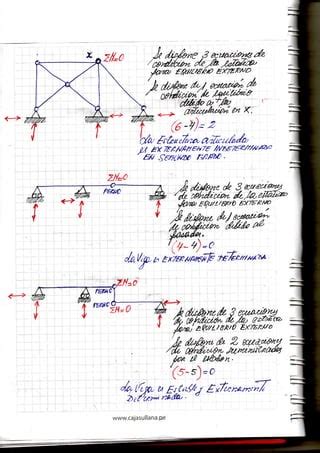 x ΣM=0
Se dispone 3 ecuaciones de
condición de la estática
para EQUILIBRIO EXTERNO
Se dispone de 1 ecuación de
condición de equilibrio
debido a la
articulación en X.
(6-4)=2
La Estructura articulada
es EXTERNAMENTE INDETERMINADA
EN SEGUNDO GRADO.
ΣM=0
PERNO
Se dispone de 3 ecuaciones
de condición de la estática
para EQUILIBRIO EXTERNO
Se dispone de 1 ecuación
de condición debido al
pasador.
(4-4)=0
La Viga es EXTERNAMENTE DETERMINADA
ΣM=0
PERNO
PERNO ΣM=0
Se dispone de 3 ecuaciones
de condición de la estática
para EQUILIBRIO EXTERNO
Se dispone de 2 ecuaciones
de condición suministradas
por el eslabón.
(5-5)=0
La Viga es Estable y Externamente
Determinada.
www.cajasullana.pe